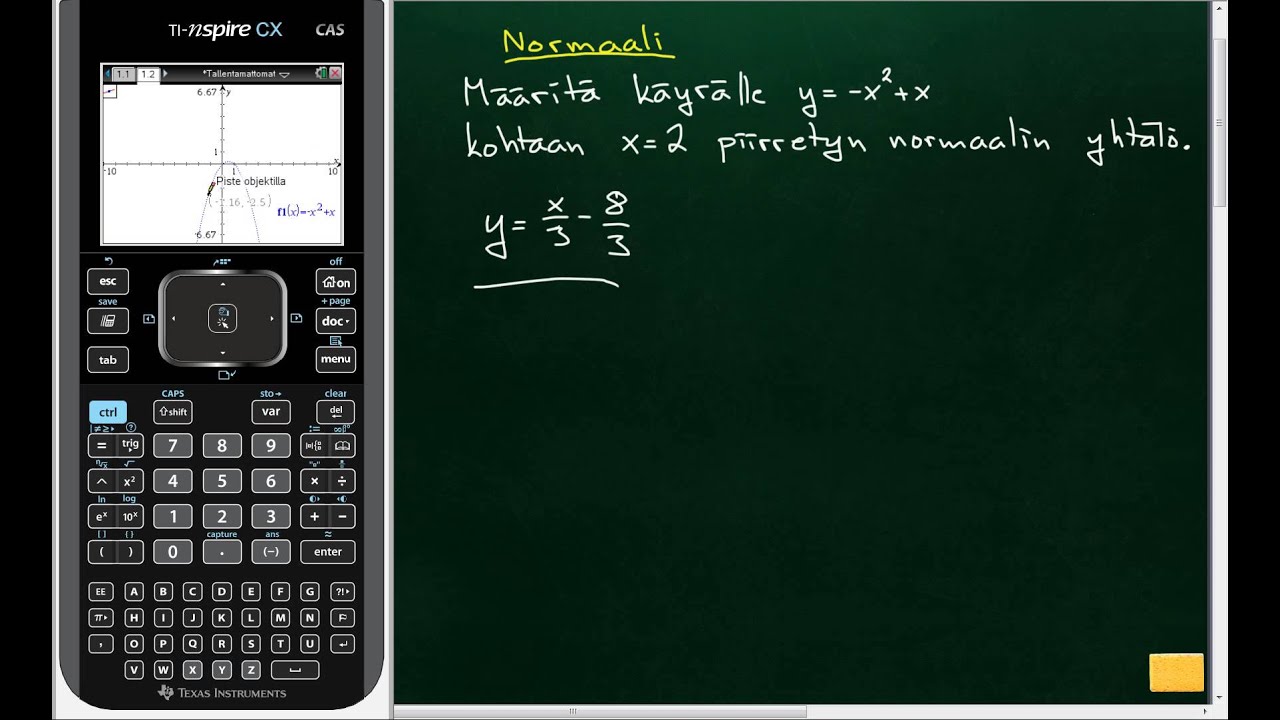 TI-nspire CX CAS
1.1 1.2 *Tallentamattomat
6.67 y
1
x
-10 1 10
Piste objektilla
f1(x)=-x²+x
-6.67
off
esc on
save + page
doc
tab menu
CAPS sto→ clear
ctrl shift var del
= trig 7 8 9
^ x² 4 5 6 × ÷
ln log
eˣ 10ˣ 1 2 3 + −
[ ] { } capture ans ≈
( ) 0 . (−) enter
EE A B C D E F G ?!
π H I J K L M N
, O P Q R S T U
V W X Y Z
TEXAS INSTRUMENTS
Normaali
Määritä käyrälle y = -x² + x
kohtaan x = 2 piirretyn normaalin yhtälö.
y = x/3 - 8/3